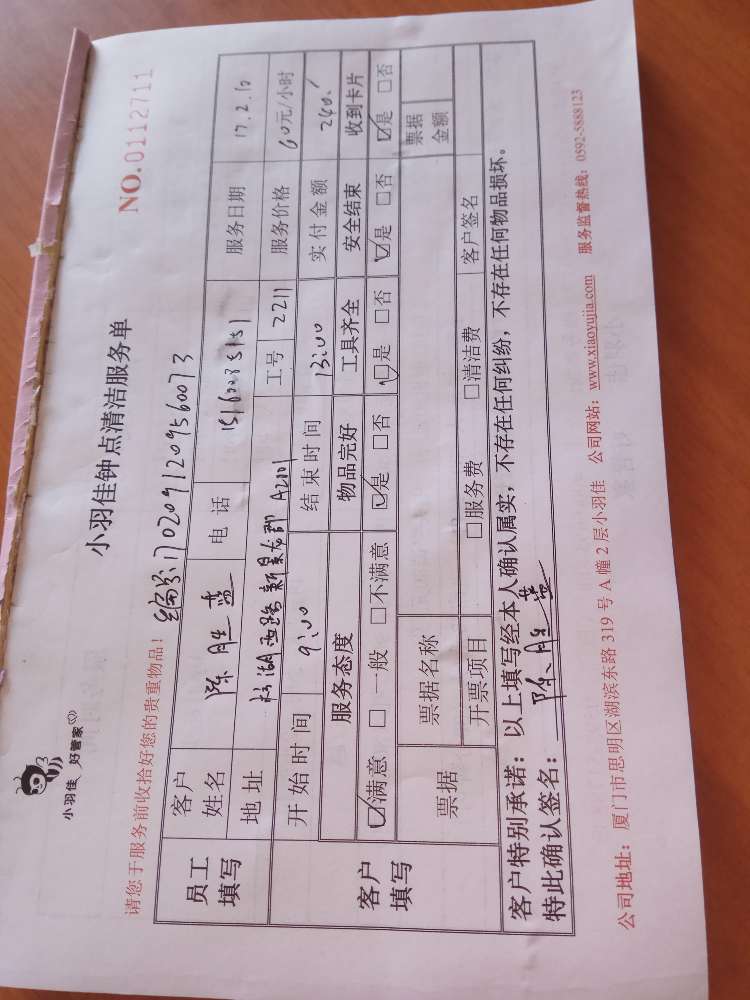 小羽佳 好管家
小羽佳钟点清洁服务单
NO.0112711
请您于服务前收拾好您的贵重物品！ 编号:1702091209560073
员工填写 客户姓名 陈胜 电话 服务日期 17.2.10
地址 西路 A2101 工号 2211 服务价格 60元/小时
开始时间 9:00 结束时间 13:00 实付金额 240.
客户填写 服务态度 物品完好 工具齐全 安全结束 收到卡片
☑满意 □一般 □不满意 ☑是 □否 ☑是 □否 ☑是 □否 ☑是 □否
票据 票据名称 票据金额
开票项目 □服务费 □清洁费 客户签名
客户特别承诺：以上填写经本人确认属实，不存在任何纠纷，不存在任何物品损坏。
特此确认签名： 陈胜
公司地址：厦门市思明区湖滨东路 319 号 A 幢 2 层小羽佳 公司网站：www.xiaoyujia.com 服务监督热线：0592-5888123